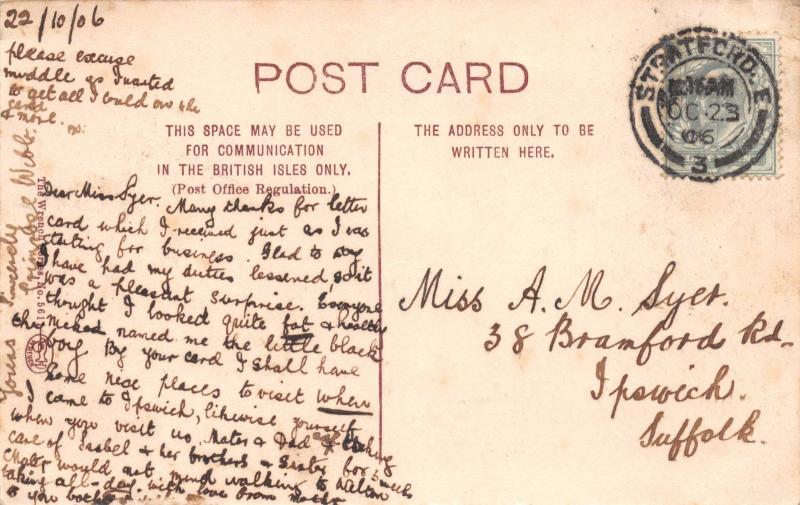 22/10/06
please excuse
muddle as I wanted
to get all I could on the
card
& more.
POST CARD
THIS SPACE MAY BE USED
FOR COMMUNICATION
IN THE BRITISH ISLES ONLY.
(Post Office Regulation.)
THE ADDRESS ONLY TO BE
WRITTEN HERE.
STRATFORD. E
OC 23
06
3
Dear Miss Syer. Many thanks for letter
card which I received just as I was
starting for business. Glad to say
I have had my duties lessened, so it
was a pleasant surprise. Everyone
thought I looked quite fat & healthy
they nicked named me the little black
boy. By your card I shall have
some nese places to visit when
I came to Ipswich, likewise yourself
when you visit us. Mater & Dad taking
care of Isabel & her brothers & sister for
Mater would not mind walking to
taking all-day. with love from
to you both
Yours sincerely
Webb.
The Wrench No.
Miss A. M. Syer.
38 Bramford Rd-
Ipswich.
Suffolk.